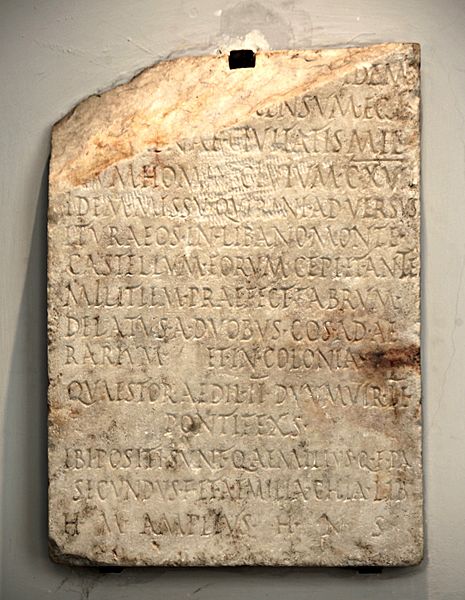 DEM
CENSVM·EGI
CIVITATIS MIL
HOMIN·CIVIVM·CXVII
IDEM·MISSV·QVIRINI·ADVERSVS
ITVRAEOS·IN·LIBANO·MONTE
CASTELLVM·EORVM·CEPI·ET ANTE
MILITIEM·PRAEFECT·FABRVM·
DELATVS·A·DVOBVS·COS·AD·AE
RARIVM ET·IN·COLONIA·
QVAESTOR·AEDIL·II·DVVMVIR·II
PONTIFEXS·
IBI POSITI·SVNT·Q·AEMILIVS·Q·F·PAL
SECVNDVS·F·ET·AEMILIA·CHIA·LIB
H M AMPLIVS H N S